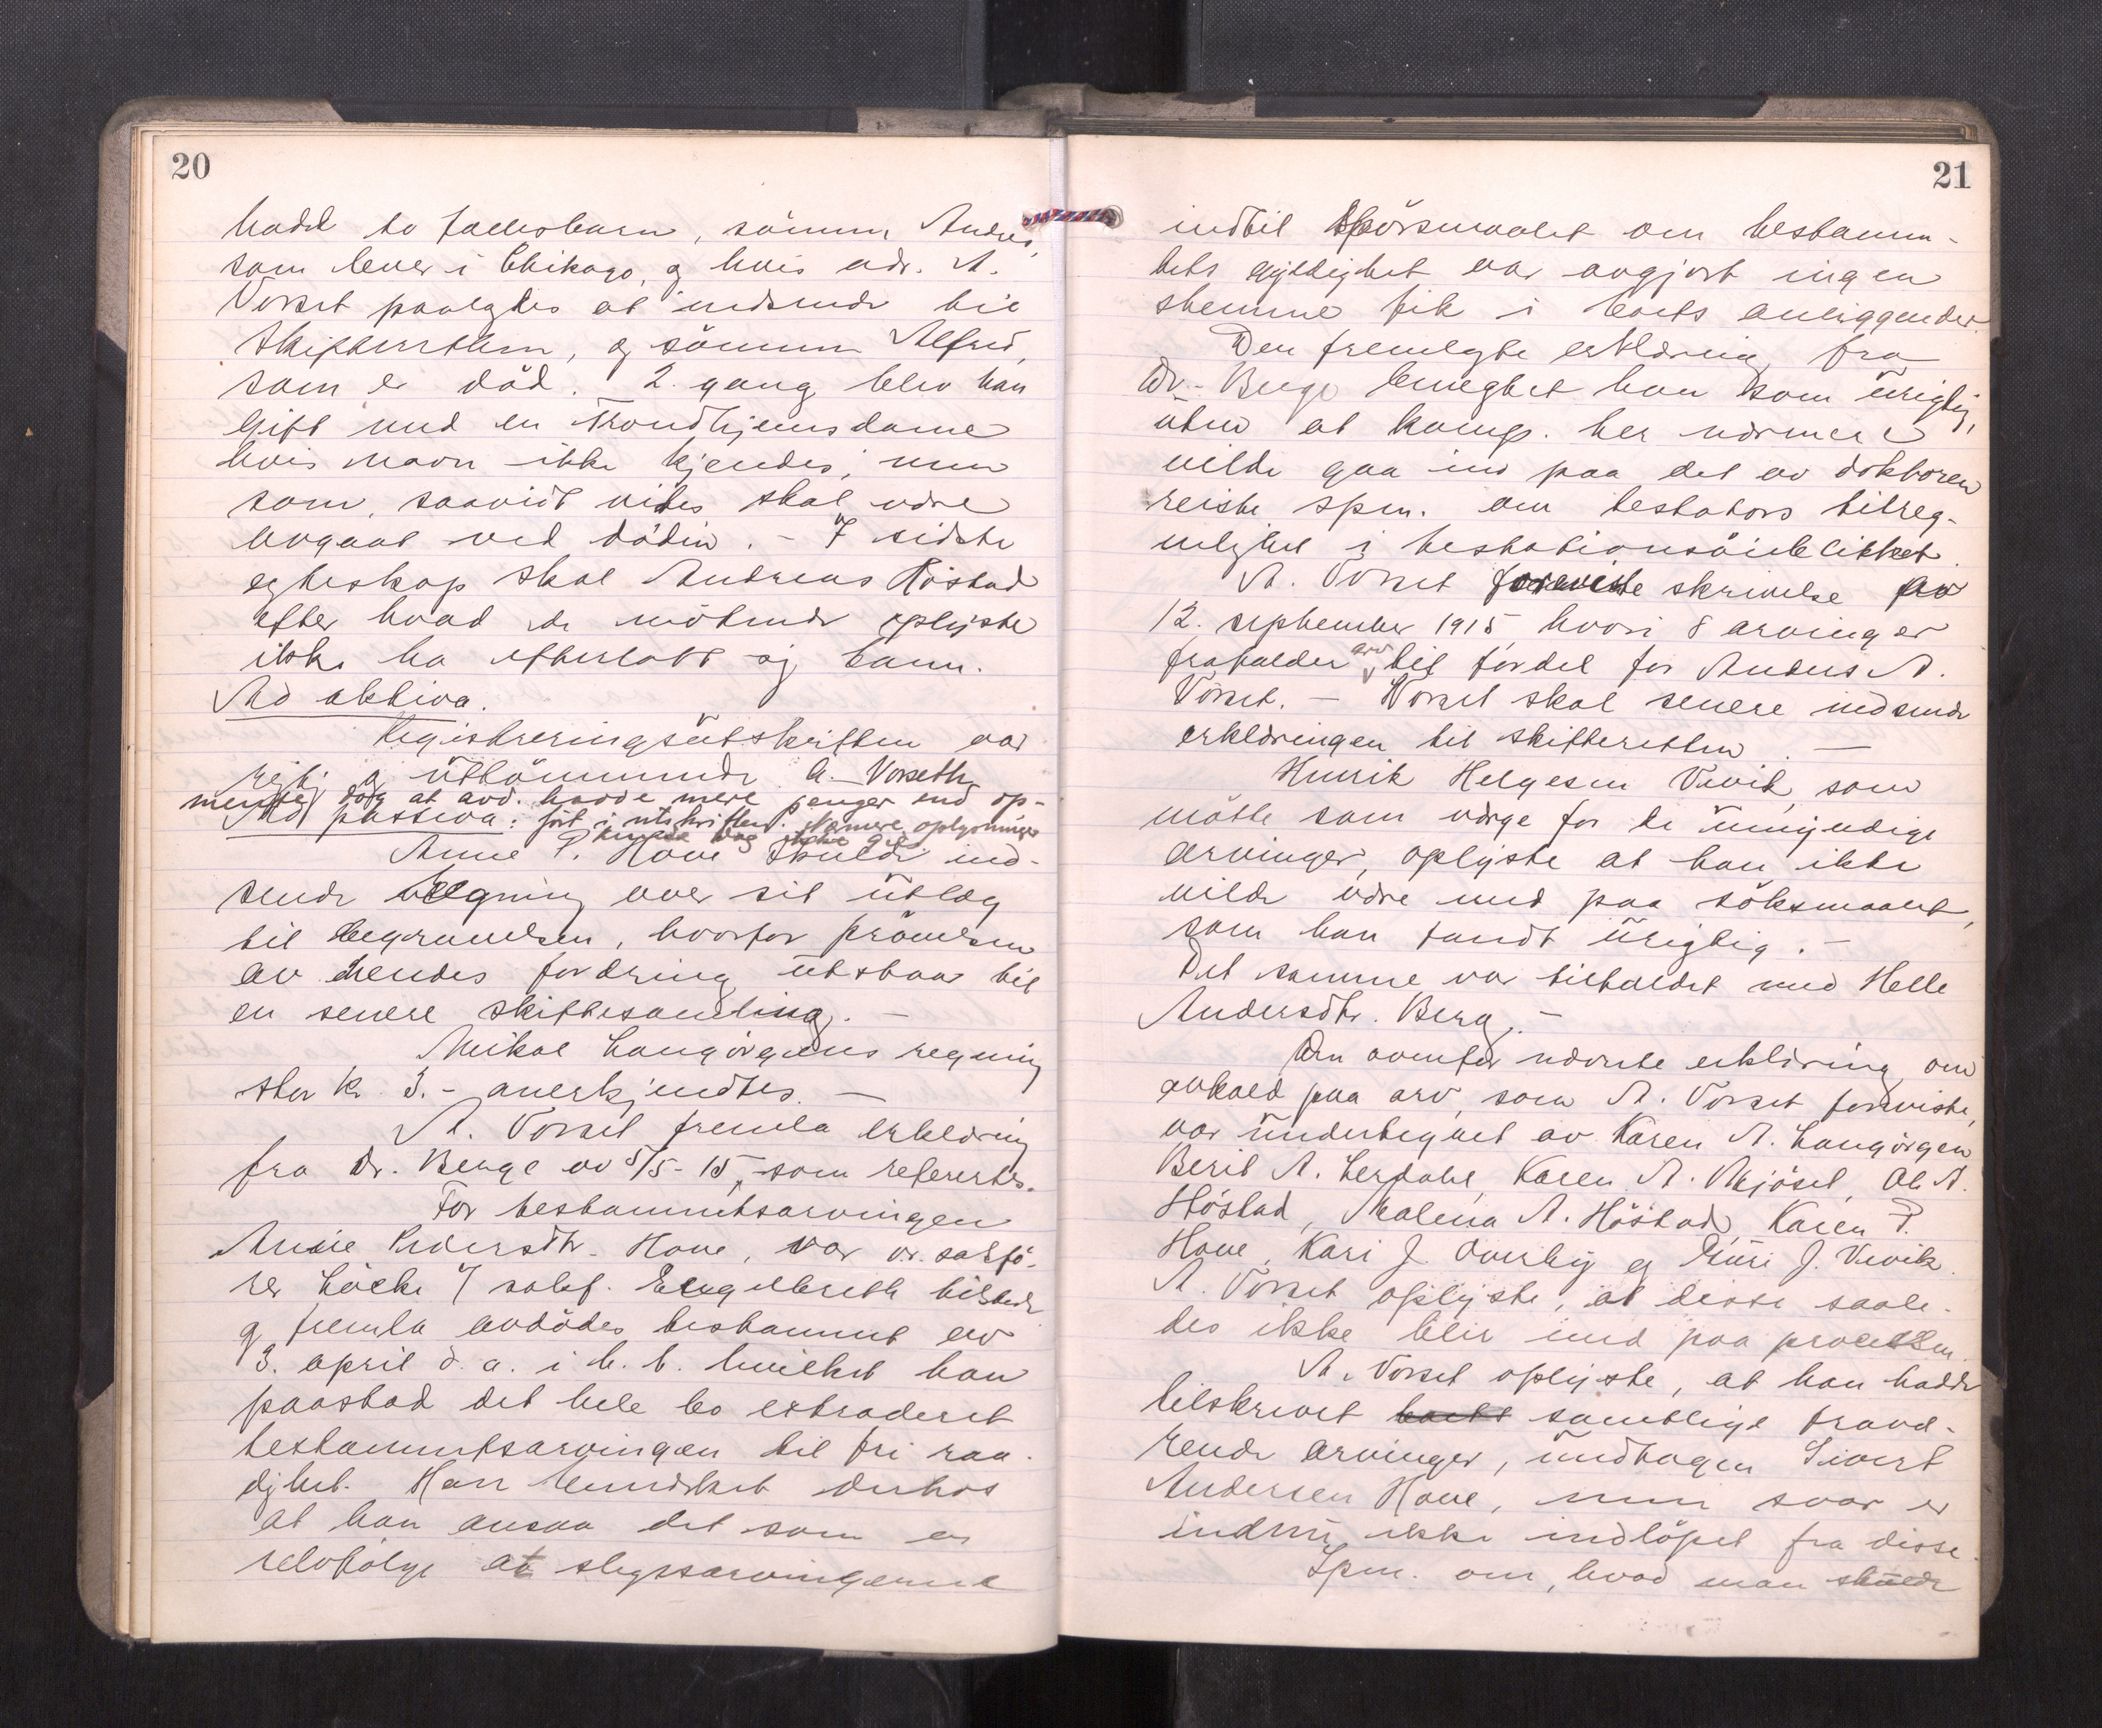 20
hadde to fællesbarn, sönnen Anders
som lever i Chikago, og hvis adr. A.
Vorset paalagdes at indsende til
skifteretten, og sönnen Alfred,
som er död. 2. gang blev han
gift med en Trondhjemsdame
hvis navn ikke kjendes, men
som, saavidt vides skal være
avgaat ved döden. – I sidste
egteskap skal Andreas Höstad
efter hvad de mötende oplyste
ikke ha efterlatt sig barn.
Ad aktiva.
Registreringsutskriften var
rigtig og uttömmende. A. Vorseth
mente dog at avd. hadde mere penger end op-
Ad passiva: fört i utskriften. Nærmere oplysninger
kunde dog ikke gis
Anne P. Hove skulde ind-
sende regning over sit utlæg
til begravelsen, hvorfor prövelsen
av hendes fordring utstaar til
en senere skiftesamling. –
Mikal Langörgens regning
stor kr. 3.- anerkjendtes. –
A. Vorset fremla erklæring
fra Dr. Benge av 5/5-15, som refertes.
For testamentsarvingen
Anne Pedersdtr. Hove, var o.r. sakfö-
rer Löcke v/ sakf. Engelbreth tilstede
og fremla avdödes testament av
3. april d. a. i h. t. hvilket han
paastod det hele bo extraderet
testamentsarvingen til fri raa-
dighet. Han bemerket derhos
at han ansaa det som en
selvfölge at slegtsarvingerne
21
indtil spörsmaalet om testamen-
tets gyldighet var avgjort ingen
stemme fik i boets anliggender.
Den fremlagte erklæring fra
Dr. Benge benegtet han som urigtig,
uten at komp. her nærmere
vilde gaa ind paa det av doktoren
reiste spm. om testators tilreg-
nelighet i testationsöieblikket.
A. Vorset foreviste skrivelse av
12. september 1915 hvori 8 arvinger
frafalder arv til fordel for Anders A.
Vorset. – Vorset skal senere indsende
erklæringen til skifteretten. –
Henrik Helgesen Vevik, som
mötte som værge for de umyndige
arvinger, oplyste at han ikke
vilde være med paa söksmaalet,
som han fandt urigtig. –
Det samme var tilfældet med Helle
Andersdtr. Berg. –
Den ovenfor nævnte erklæring om
avkald paa arv, som A. Vorset foreviste,
var undertegnet av Karen A. Langörgen
Berit A. Lerdahl, Karen A. Mjöset, Ole A.
Höstad, Malena A. Höstad, Karen P.
Hove, Kari J. Overby og Guri J. Vevik.
A. Vorset oplyste, at disse saale-
des ikke blir med paa processen.
A. Vorset oplyste, at han hadde
tilskrevet boets samtlige fravæ-
rende arvinger, undtagen Sivert
Andersen Hove, men svar er
indnu ikke indlöpet fra disse.
Spm. om, hvad man skulde